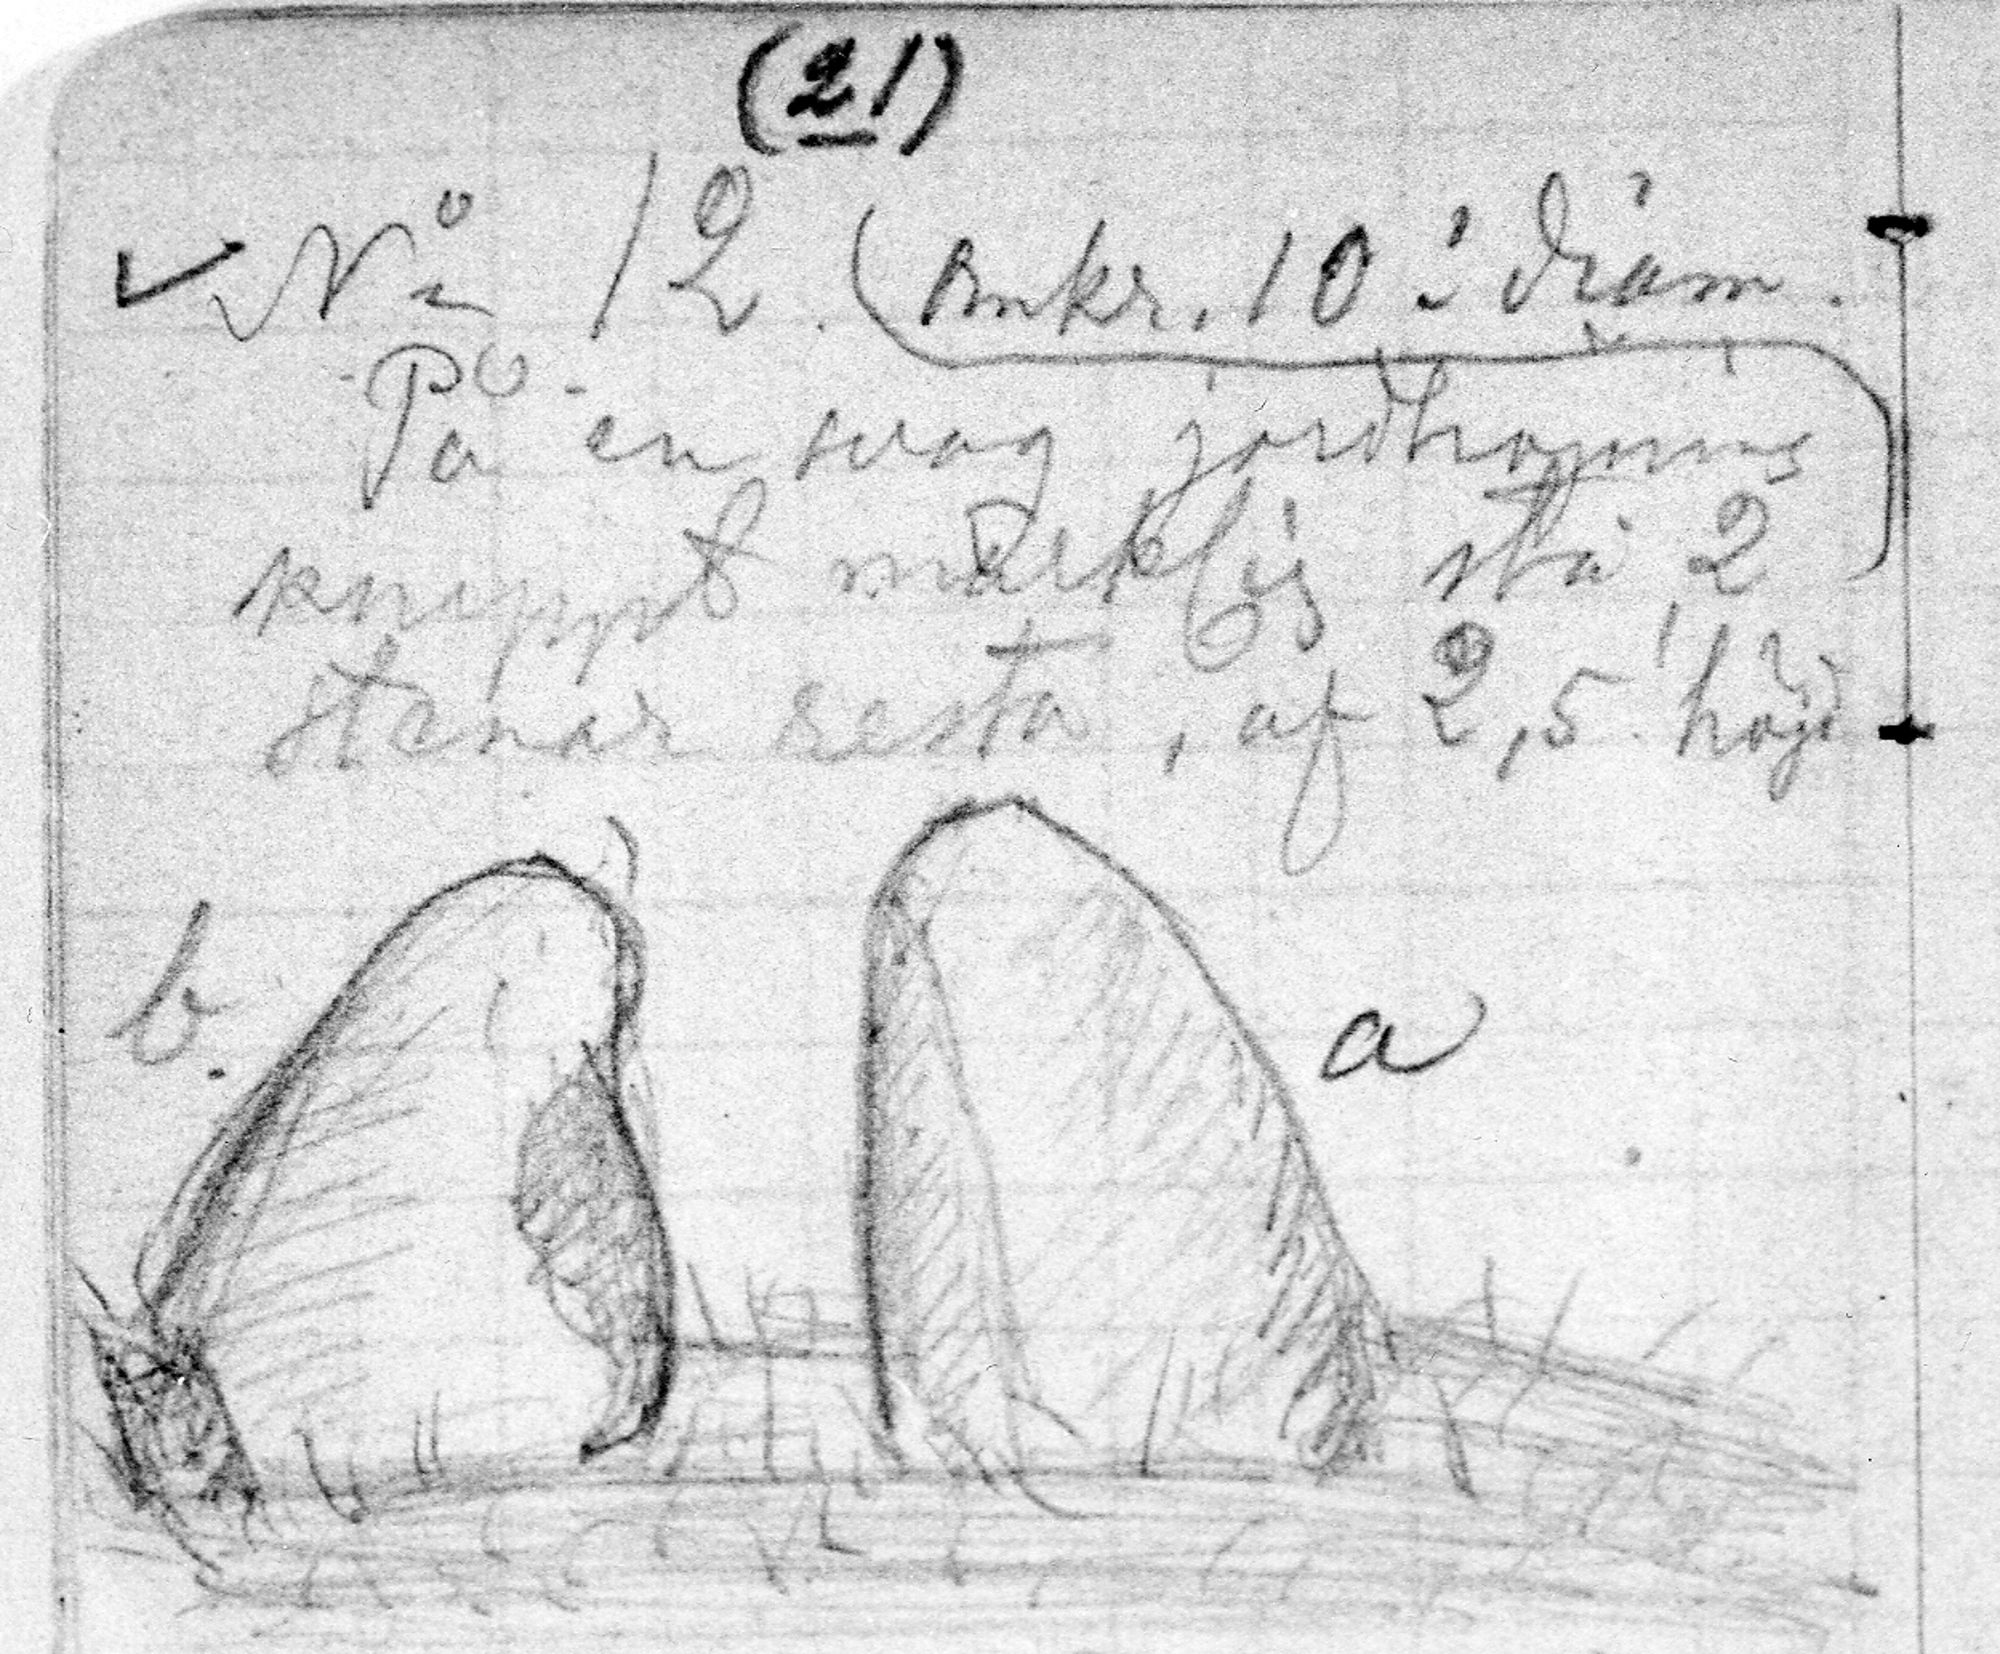 (21)
No 12. (Omkr. 10' i diam.
På en svag jordhöjning
knappt märklig stå 2
stenar resta, af 2,5' höjd
b.
a